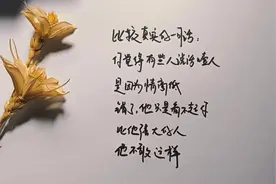 比较真实的一句话：
你觉得有些人说话噎人
是因为情商低
错了，他只是看不起你
比他强大的人
他不敢这样